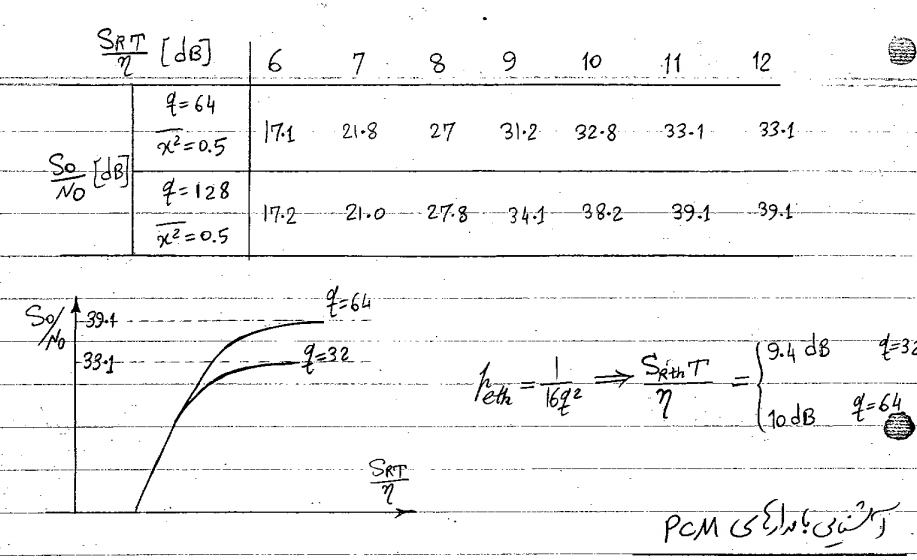 SRT/η [dB] 6 7 8 9 10 11 12
q=64
x̄²=0.5 17.1 21.8 27 31.2 32.8 33.1 33.1
So/No [dB]
q=128
x̄²=0.5 17.2 21.0 27.8 34.1 38.2 39.1 39.1
So/No
39.1
q=64
33.1
q=32
SRT/η
Peth = 1/16q² ⟹ SRthT/η = { 9.4 dB q=32
10 dB q=64
آشنایی با مدارهای PCM